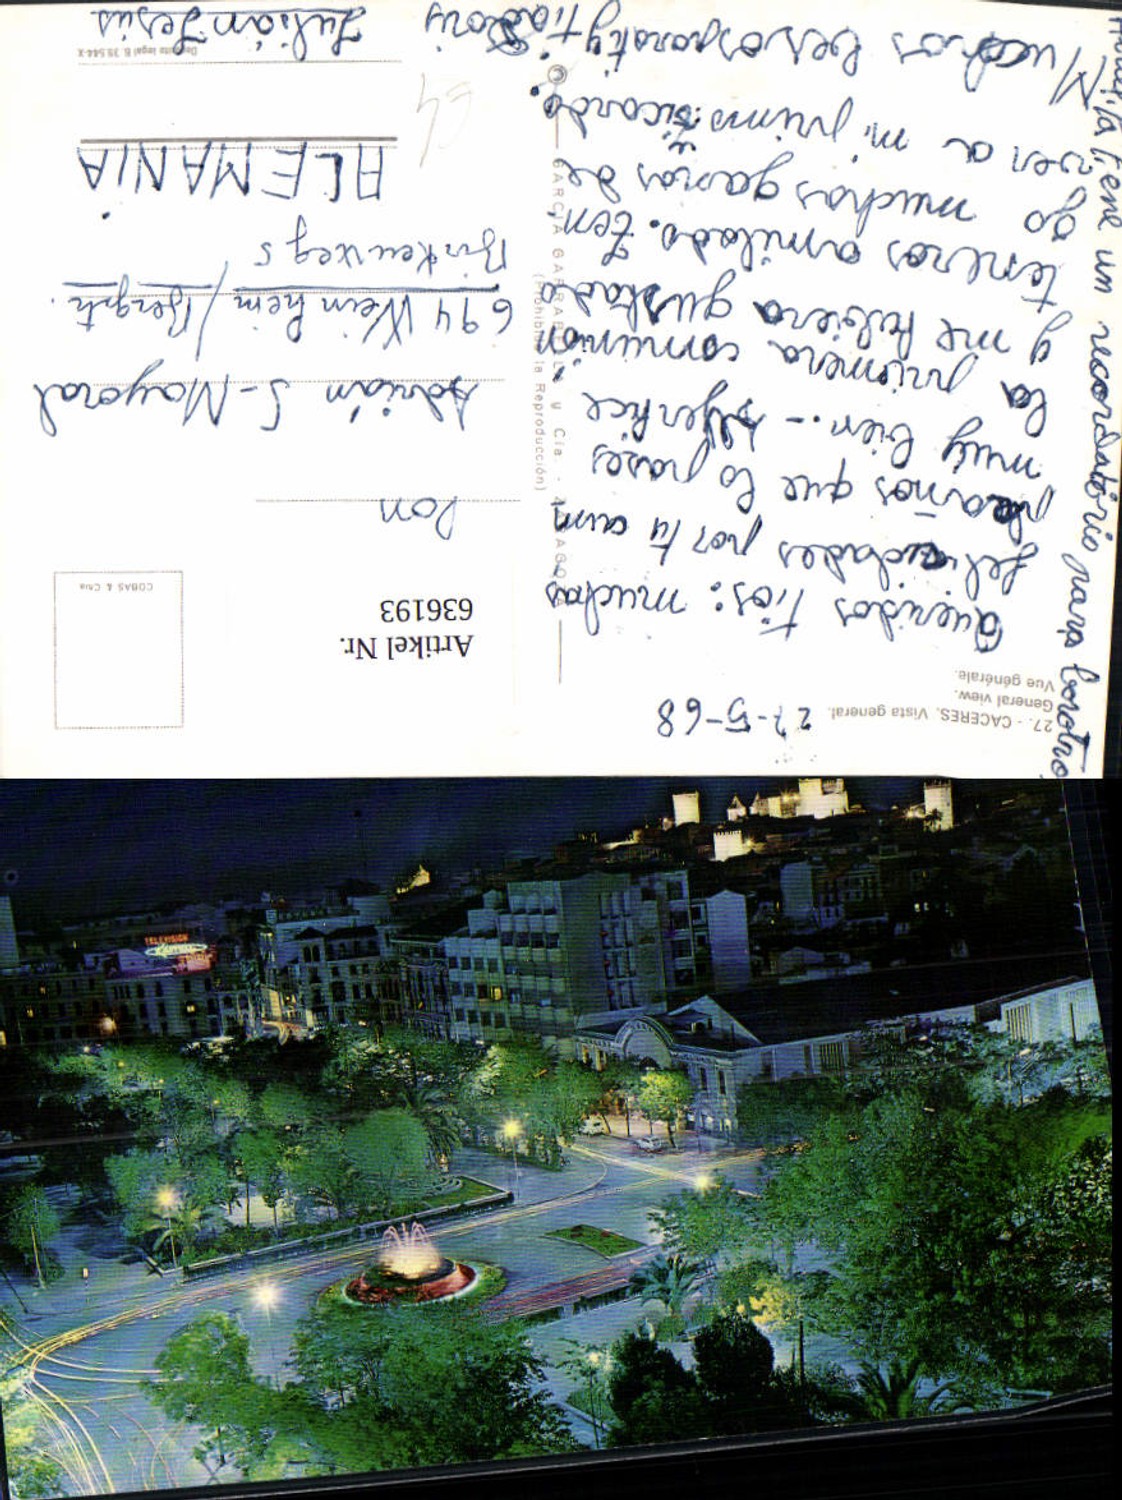 27. - CACERES. Vista general.
General view.
Vue générale.
27-5-68
Queridos tios: muchas
felicidades por tu cum
pleaños que lo pases
muy bien.-
la primera comunión
y me hubiera gustado
teneros a mi lado. ten
go muchas ganas de
ver a mi primo Ricardo.
Muchos besos para ti y tia
Julián Jesús
tiene un recordatorio para
GARCIA GARRABELLA y Cía. - ZARAGOZA
(Prohibida la Reproducción)
Artikel Nr.
636193
COBAS & Cña
Don
Adrián S-Mayoral
694 Weinheim/Bergstr.
Birkenweg 5
ALEMANIA
64
Depósito legal B. 39.544-X
TELEVISION